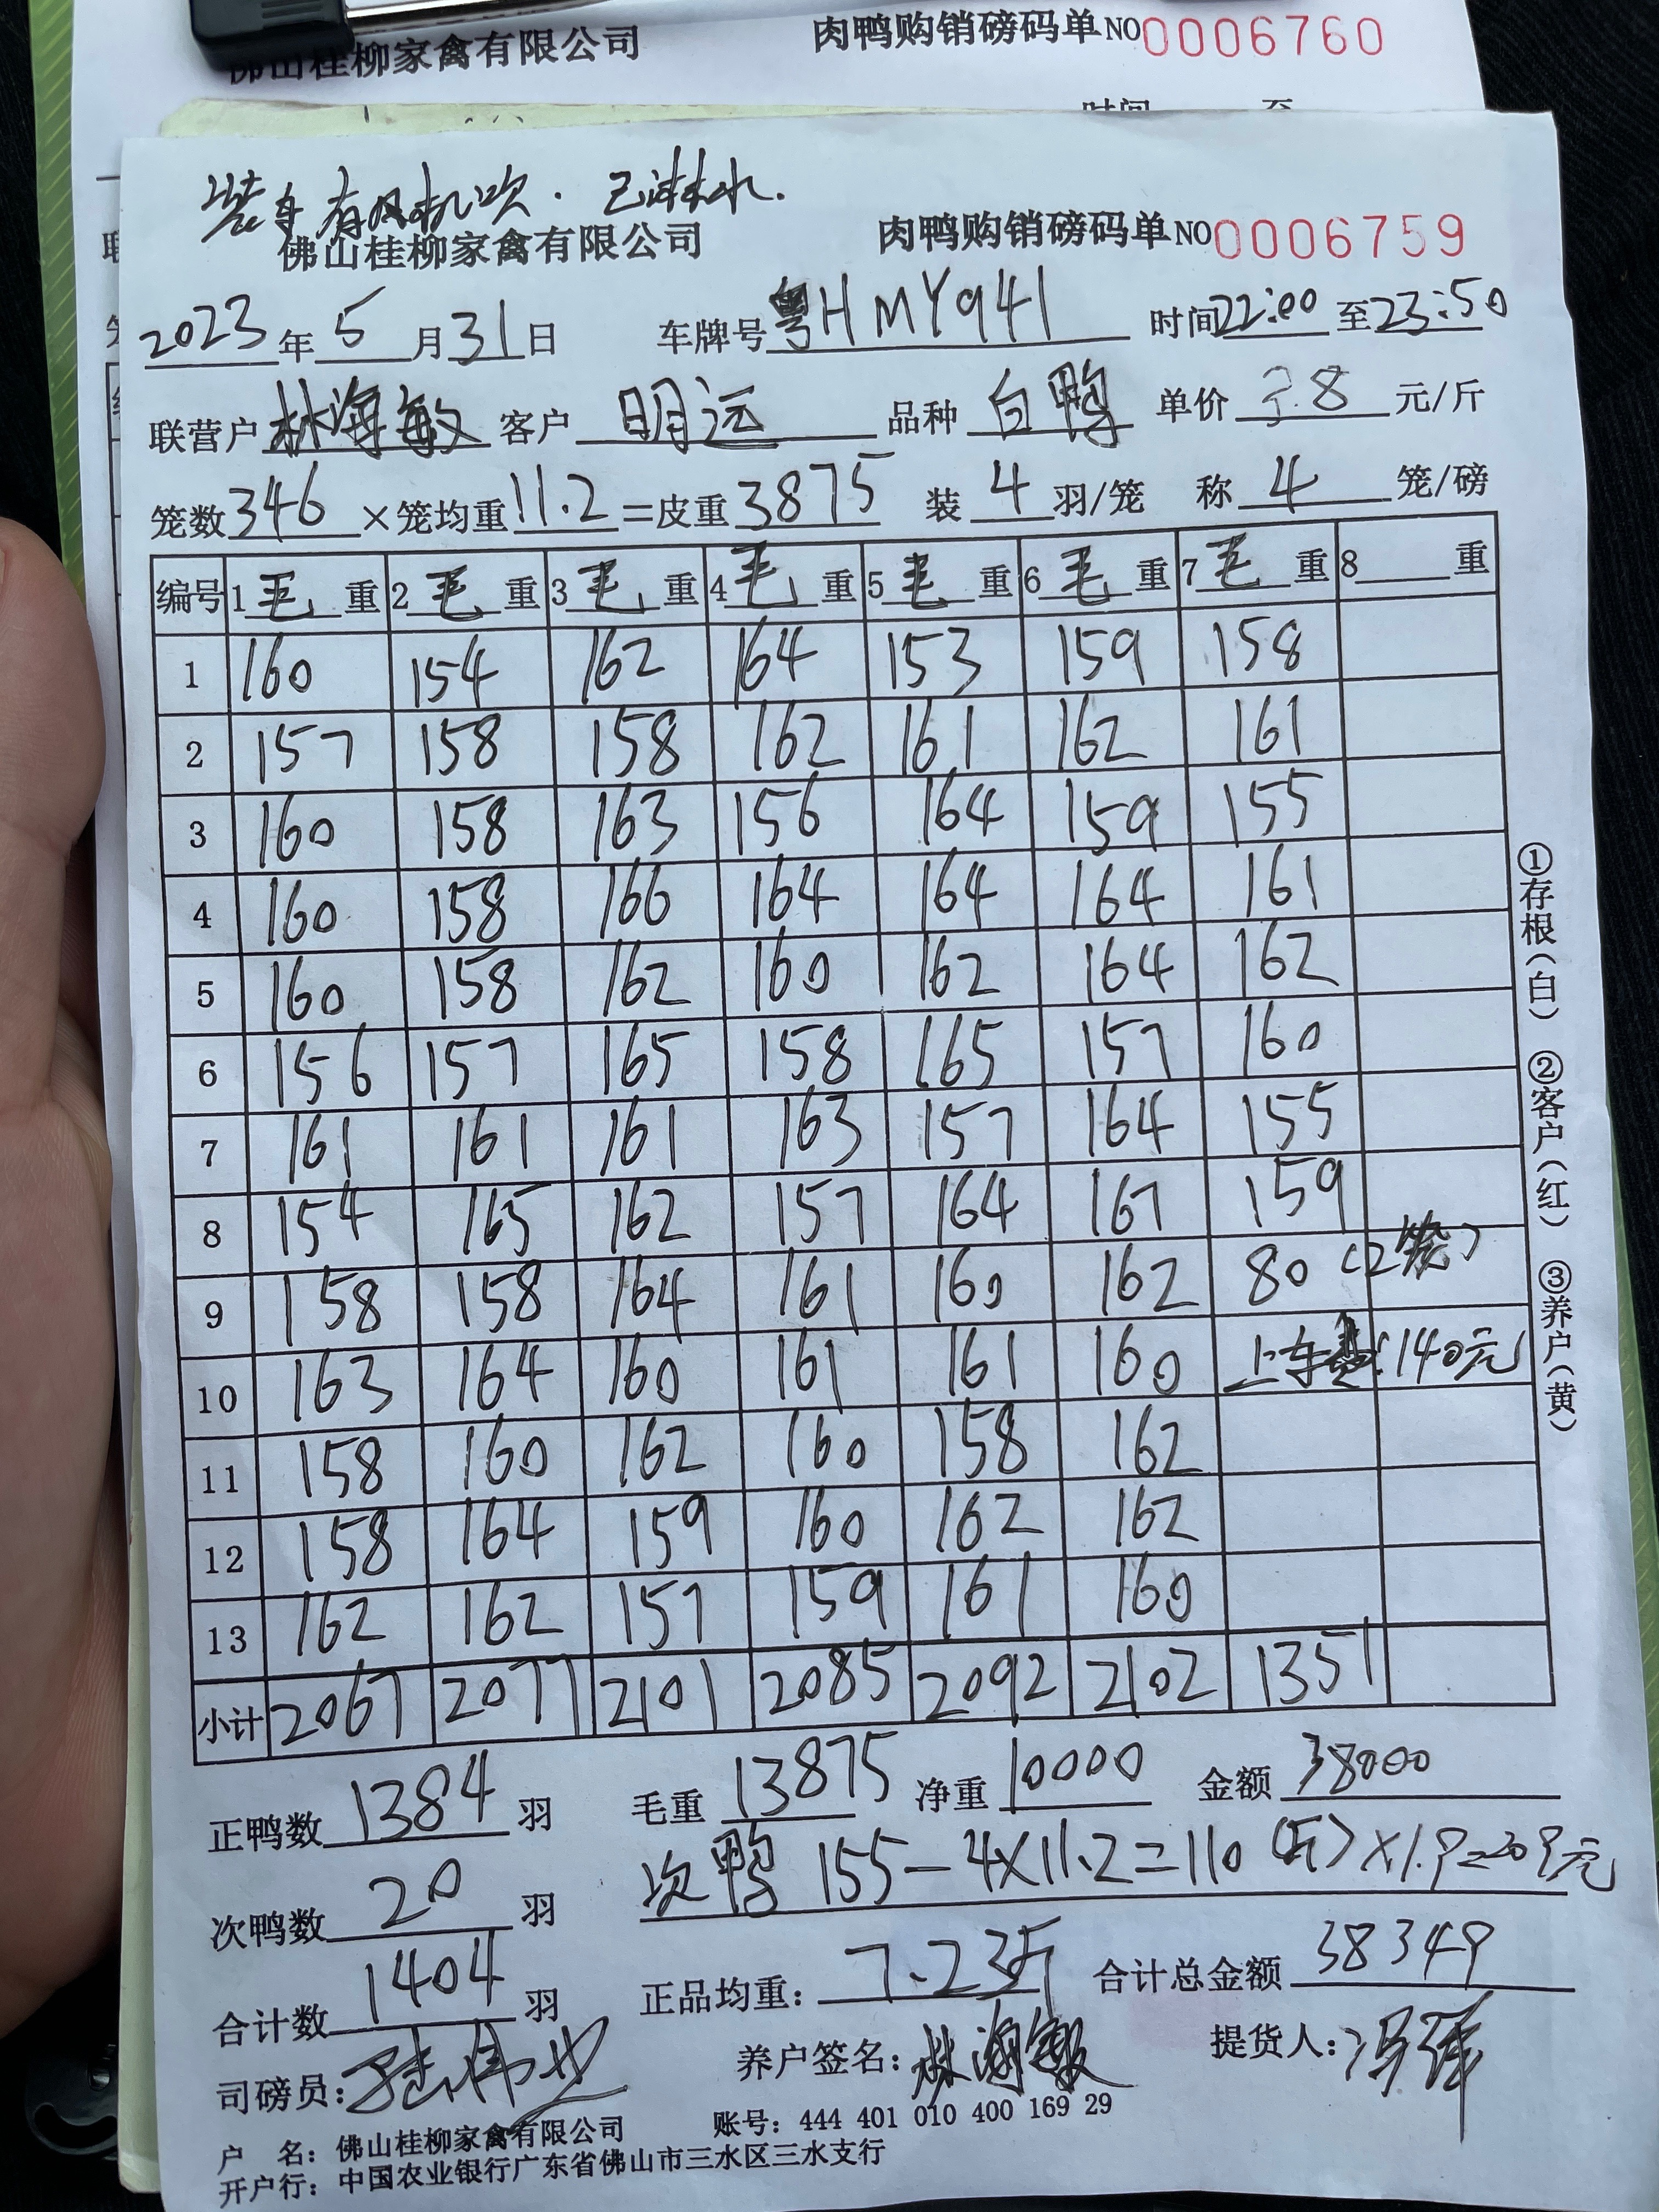 佛山桂柳家禽有限公司 肉鸭购销磅码单NO0006760
时间 至
装车有风机吹. 已淋水.
佛山桂柳家禽有限公司 肉鸭购销磅码单NO0006759
2023年5月31日 车牌号粤HMY941 时间22:00至23:50
联营户林海敏 客户 明远 品种 白鸭 单价 3.8 元/斤
笼数346×笼均重11.2=皮重3875 装 4 羽/笼 称 4 笼/磅
编号 1毛重 2毛重 3毛重 4毛重 5毛重 6毛重 7毛重 8 重
1 160 154 162 164 153 159 158
2 157 158 158 162 161 162 161
3 160 158 163 156 164 159 155
4 160 158 166 164 164 164 161
5 160 158 162 160 162 164 162
6 156 157 165 158 165 157 160
7 161 161 161 163 157 164 155
8 154 165 162 157 164 167 159
9 158 158 164 161 160 162 80 (2笼)
10 163 164 160 161 161 160 上车费:140元
11 158 160 162 160 158 162
12 158 164 159 160 162 162
13 162 162 157 159 161 160
小计 2067 2077 2101 2085 2092 2102 1351
正鸭数1384羽 毛重 13875 净重 10000 金额 38000
次鸭数 20 羽 次鸭 155-4×11.2=110(斤)×1.9=209元
合计数 1404 羽 正品均重: 7.23斤 合计总金额 38349
司磅员: 养户签名:林海敏 提货人:
户 名: 佛山桂柳家禽有限公司 账号: 444 401 010 400 169 29
开户行: 中国农业银行广东省佛山市三水区三水支行
①存根(白) ②客户(红) ③养户(黄)